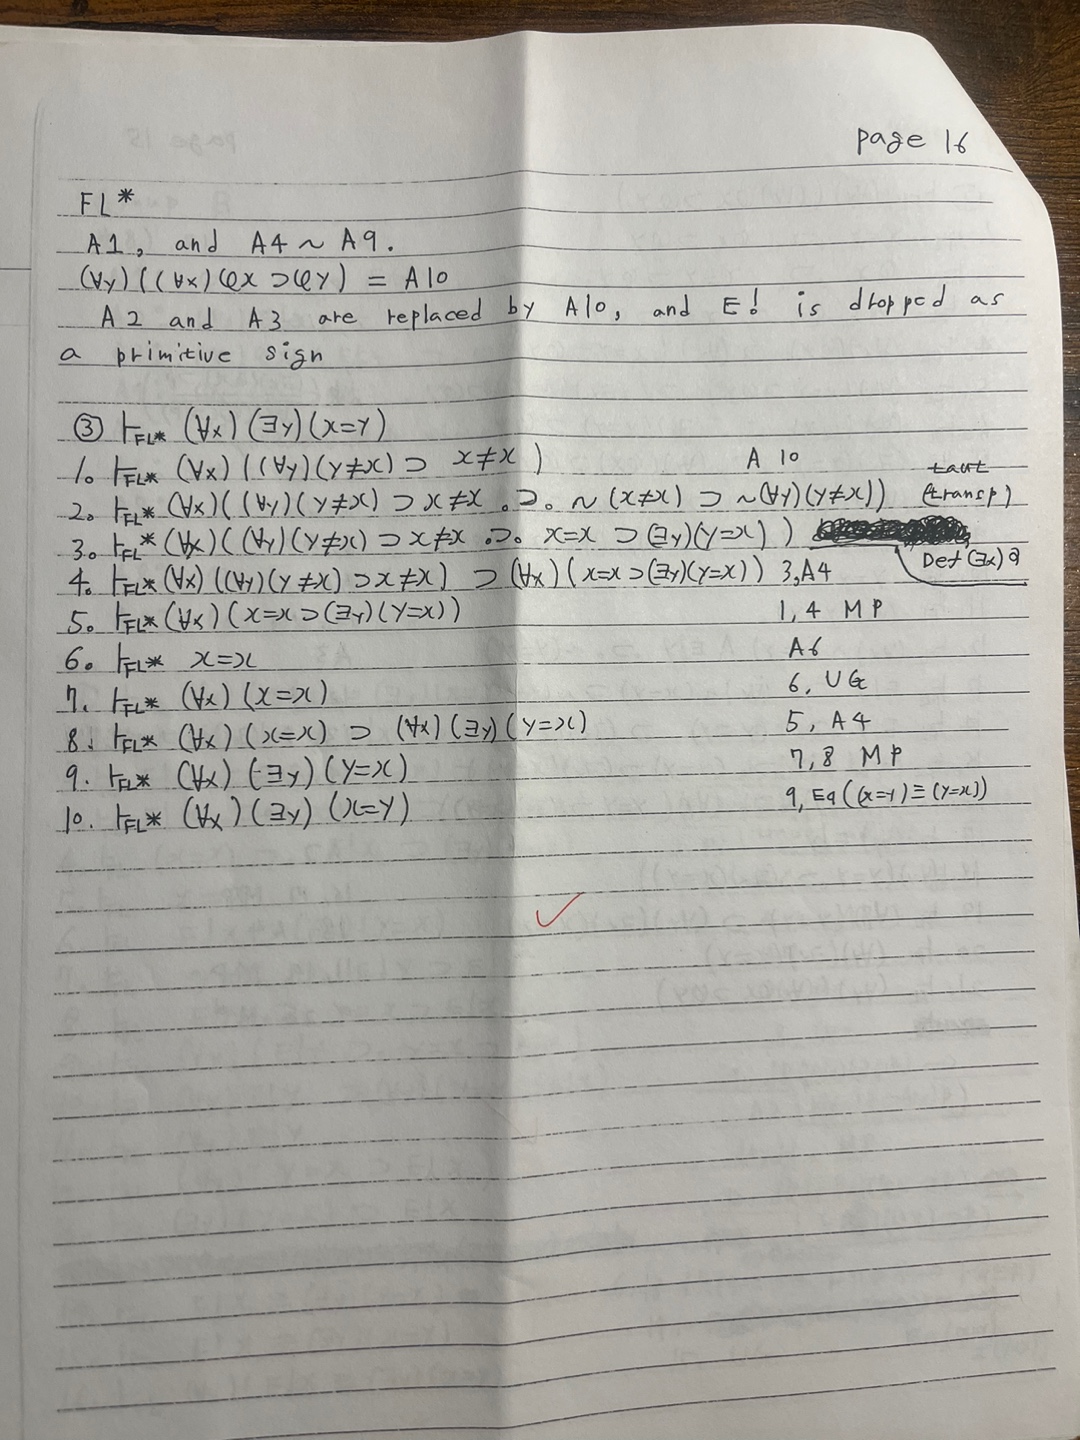 page 16
FL*
A1, and A4 ~ A9.
(∀y)((∀x)φx ⊃ φy) = A10
A2 and A3 are replaced by A10, and E! is dropped as
a primitive sign
③ ⊢FL* (∀x)(∃y)(x=y)
1. ⊢FL* (∀x)((∀y)(y≠x) ⊃ x≠x) A 10
2. ⊢FL* (∀x)((∀y)(y≠x) ⊃ x≠x .⊃. ~(x≠x) ⊃ ~(∀y)(y≠x)) taut (transp)
3. ⊢FL* (∀x)((∀y)(y≠x) ⊃ x≠x .⊃. x=x ⊃ (∃y)(y=x)) Def (∃x)φ
4. ⊢FL* (∀x)((∀y)(y≠x) ⊃ x≠x) ⊃ (∀x)(x=x ⊃ (∃y)(y=x)) 3, A4
5. ⊢FL* (∀x)(x=x ⊃ (∃y)(y=x)) 1, 4 MP
6. ⊢FL* x=x A6
7. ⊢FL* (∀x)(x=x) 6, UG
8. ⊢FL* (∀x)(x=x) ⊃ (∀x)(∃y)(y=x) 5, A4
9. ⊢FL* (∀x)(∃y)(y=x) 7, 8 MP
10. ⊢FL* (∀x)(∃y)(x=y) 9, Eq((x=y)≡(y=x))